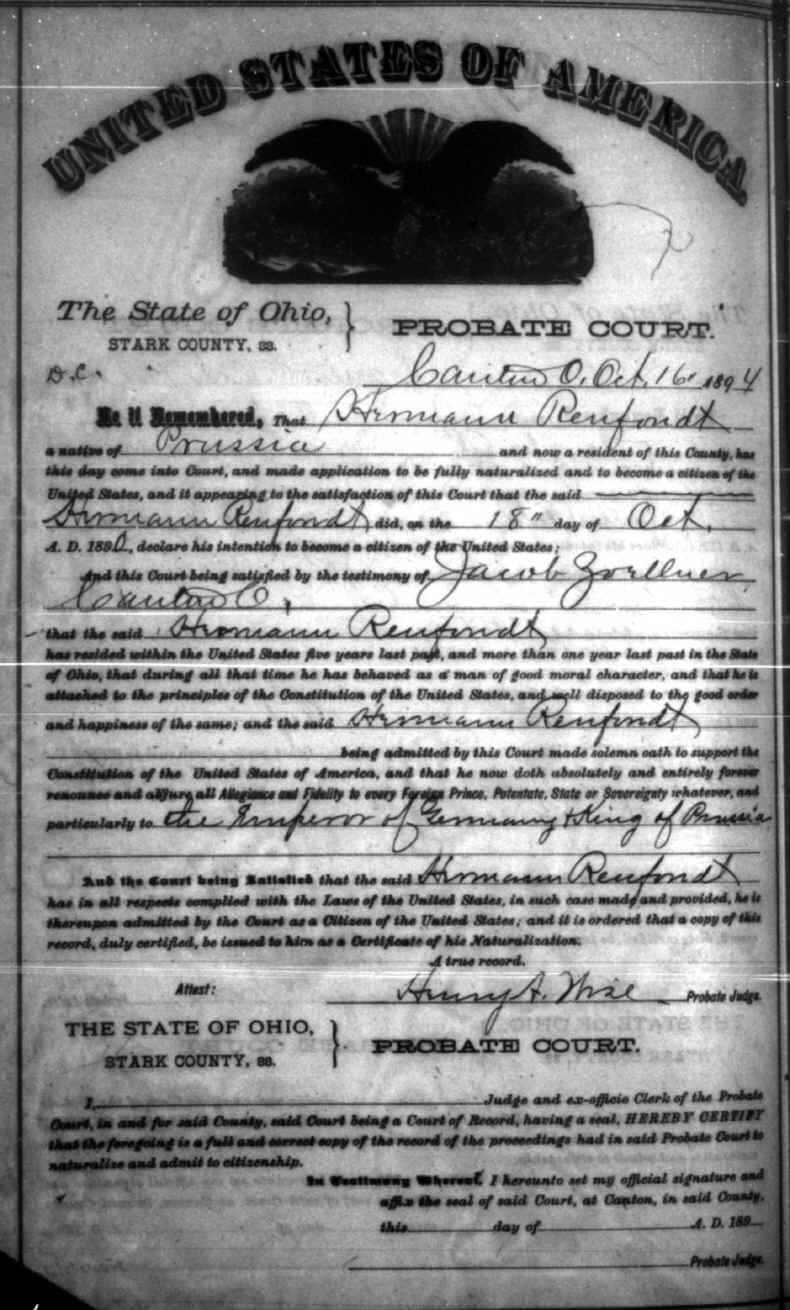 UNITED STATES OF AMERICA.
The State of Ohio,
STARK COUNTY, ss.
PROBATE COURT.
D.C.
Canton O. Oct. 16" 1894
Be it Remembered, That Hermann Renfondt
a native of Prussia and now a resident of this County, has
this day come into Court, and made application to be fully naturalized and to become a citizen of the
United States, and it appearing to the satisfaction of this Court that the said
Hermann Renfondt did, on the 18" day of Oct.
A. D. 1890, declare his intention to become a citizen of the United States;
And this Court being satisfied by the testimony of Jacob Zoellner
Canton O.
that the said Hermann Renfondt
has resided within the United States five years last past, and more than one year last past in the State
of Ohio, that during all that time he has behaved as a man of good moral character, and that he is
attached to the principles of the Constitution of the United States, and well disposed to the good order
and happiness of the same; and the said Hermann Renfondt
being admitted by this Court made solemn oath to support the
Constitution of the United States of America, and that he now doth absolutely and entirely forever
renounce and abjure all Allegiance and Fidelity to every Foreign Prince, Potentate, State or Sovereignty whatever, and
particularly to the Emperor of Germany & King of Prussia
And the Court being Satisfied that the said Hermann Renfondt
has in all respects complied with the Laws of the United States, in such case made and provided, he is
thereupon admitted by the Court as a Citizen of the United States; and it is ordered that a copy of this
record, duly certified, be issued to him as a Certificate of his Naturalization.
A true record.
Attest: Henry A. Wise Probate Judge.
THE STATE OF OHIO,
STARK COUNTY, ss.
PROBATE COURT.
I, Judge and ex-officio Clerk of the Probate
Court, in and for said County, said Court being a Court of Record, having a seal, HEREBY CERTIFY
that the foregoing is a full and correct copy of the record of the proceedings had in said Probate Court to
naturalize and admit to citizenship.
In Testimony Whereof, I hereunto set my official signature and
affix the seal of said Court, at Canton, in said County,
this day of A. D. 189
Probate Judge.